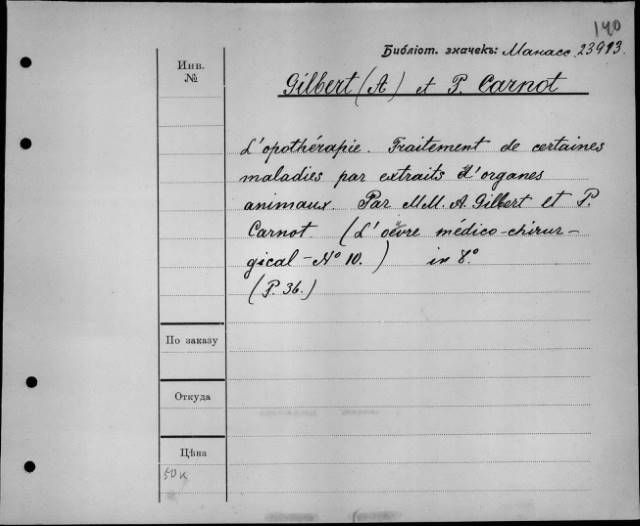 140
Библіот. значекъ: Манасс. 23913.
Инв.
№
Gilbert (A) et P. Carnot
L'opothérapie. Traitement de certaines
maladies par extraits d'organes
animaux. Par MM. A. Gilbert et P.
Carnot. (L'oèvre médico-chirur-
gical - No 10.) in 8o.
(P. 36.)
По заказу
Откуда
Цѣна
50 к